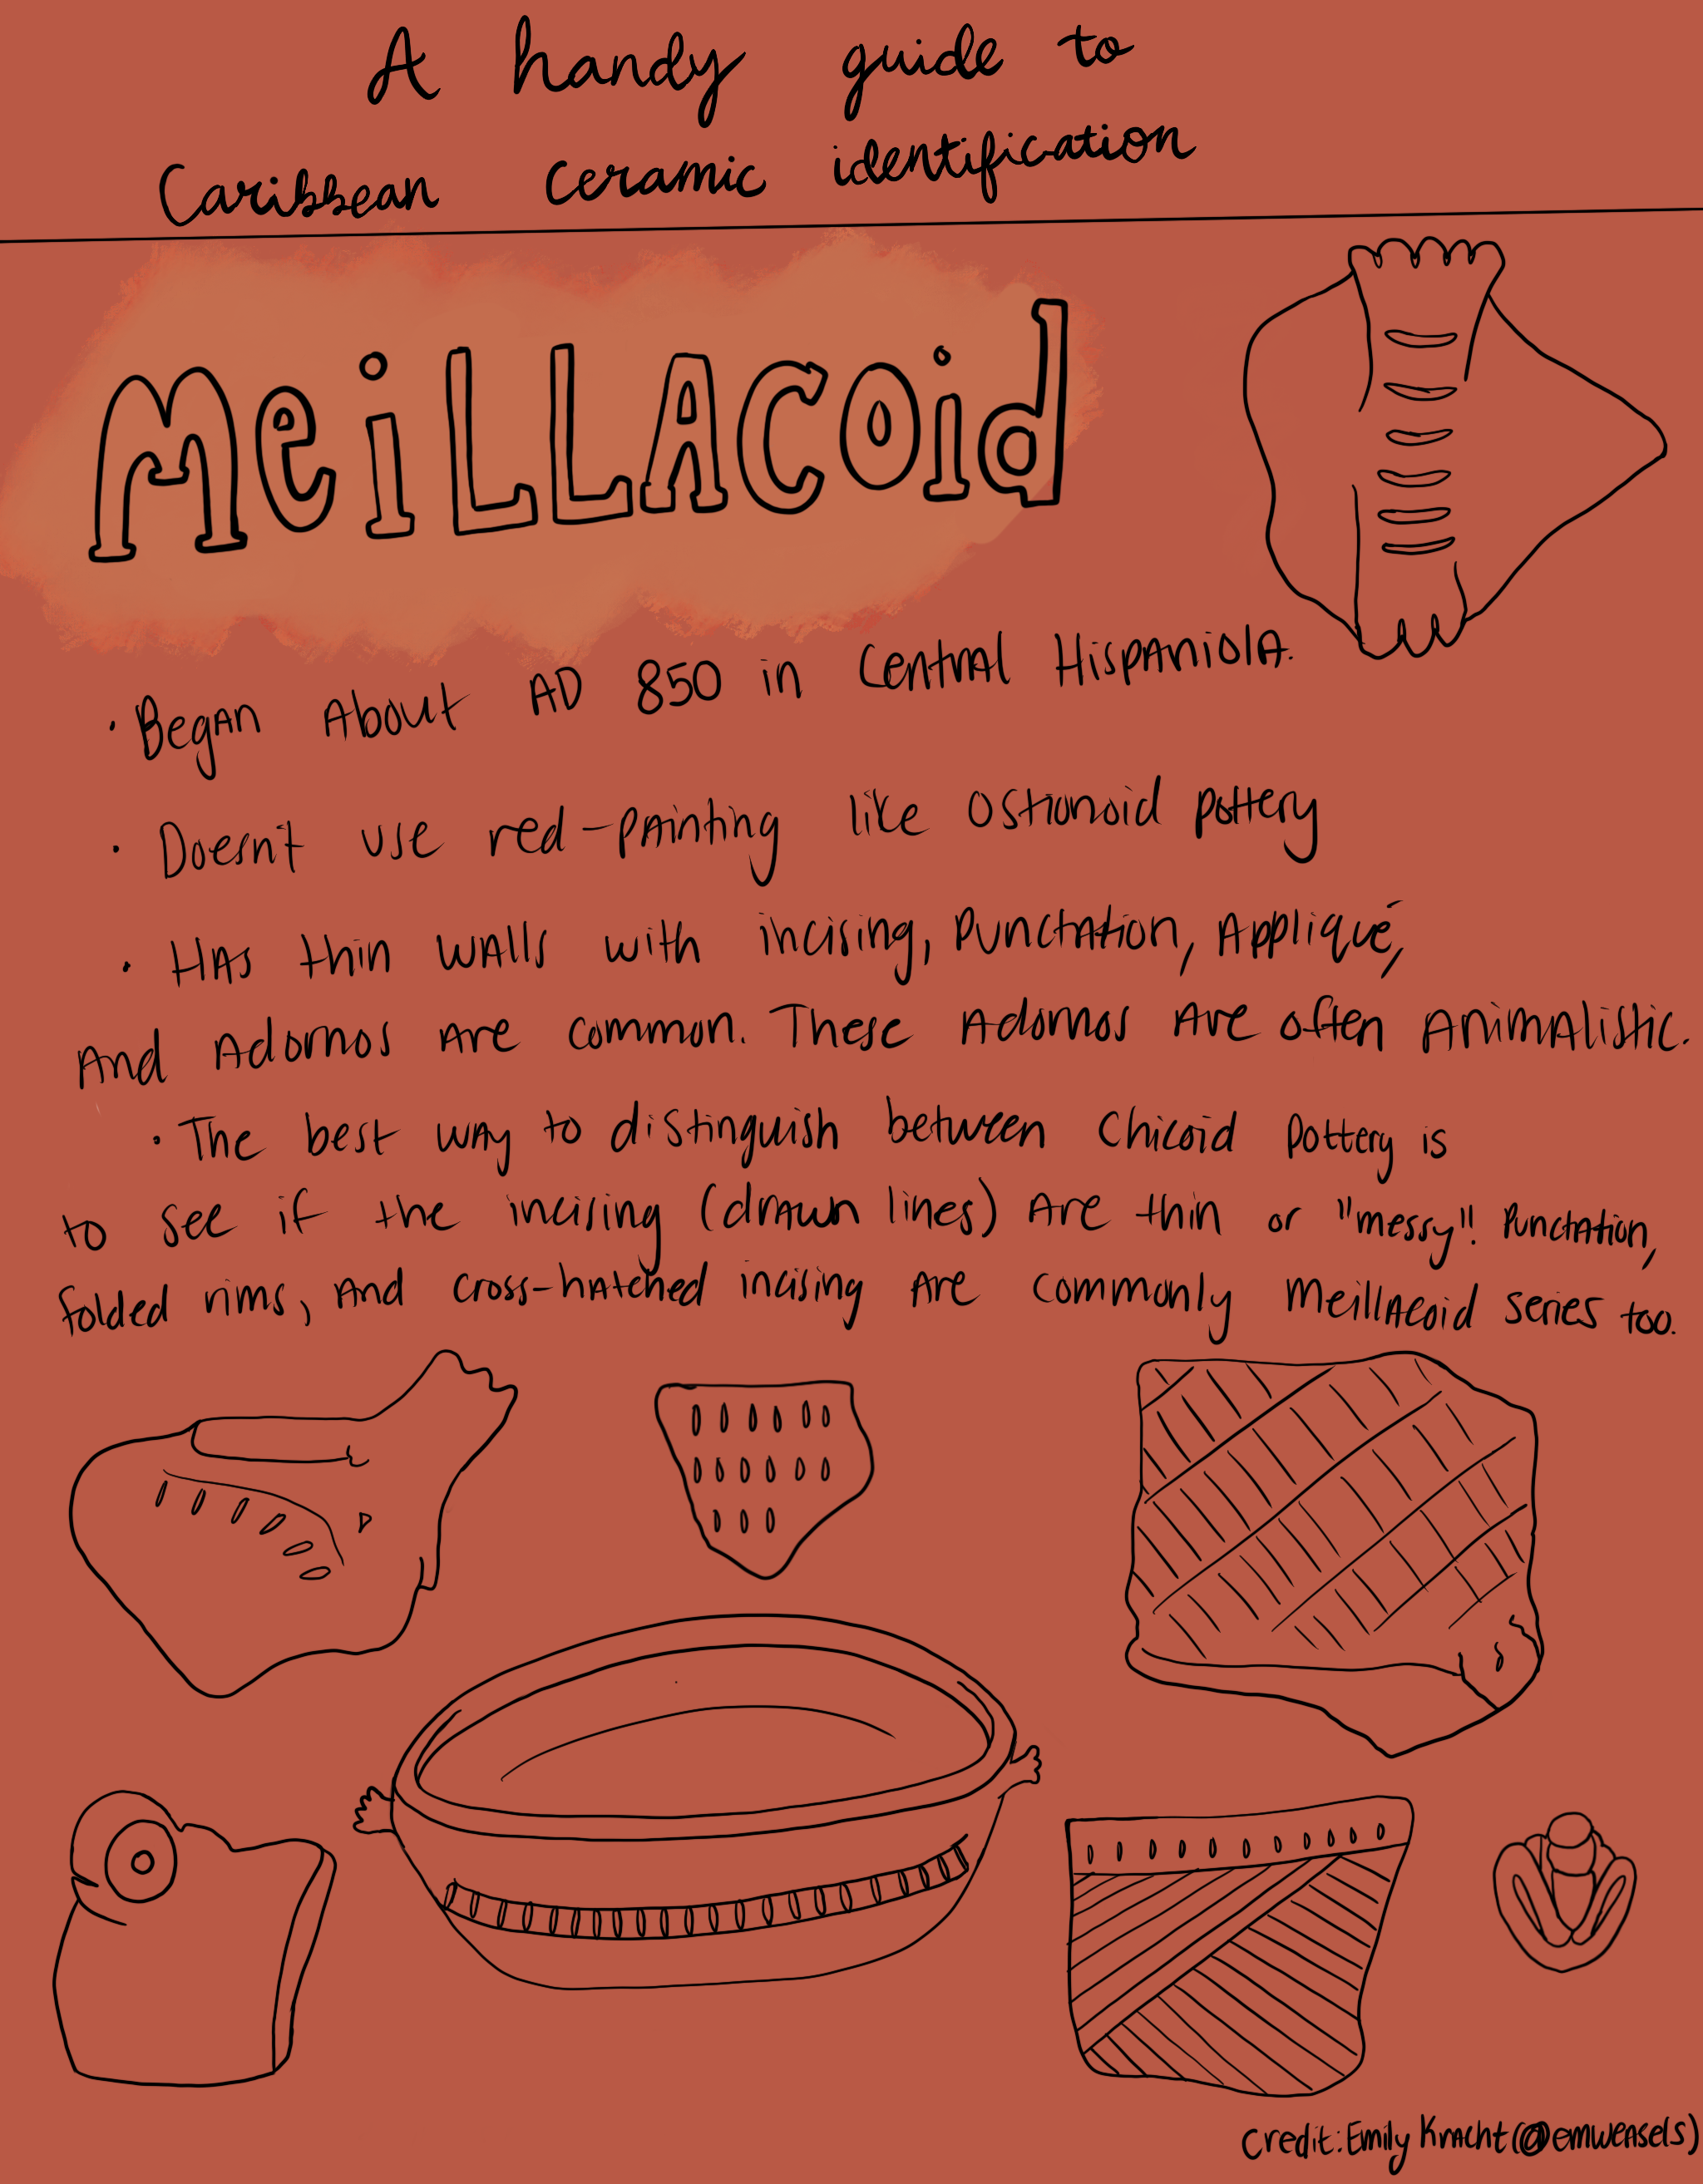 A handy guide to
Caribbean ceramic identification
MeiLLACOid
· Began About AD 850 in Central HispAniolA.
· Doesn't use red-pAinting like Ostionoid pottery
· HAs thin wAlls with incising, Punctation, Appliqué,
And Adornos Are common. These Adornos Are often AnimAlistic.
· The best wAy to distinguish between Chicoid Pottery is
to see if the incising (drAwn lines) Are thin or "messy"! Punctation,
folded rims, And cross-hAtched incising Are commonly MeillAcoid series too.
Credit: Emily KrAcht (@emweAsels)